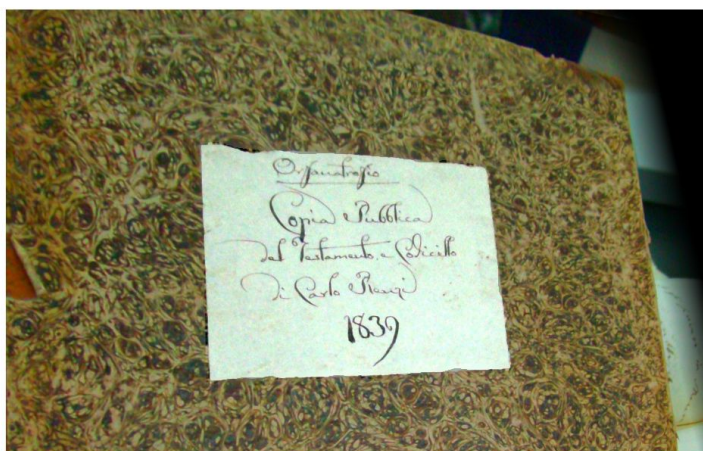 Orfanatrofio
Copia Pubblica
del Testamento, e Codicillo
di Carlo
1839